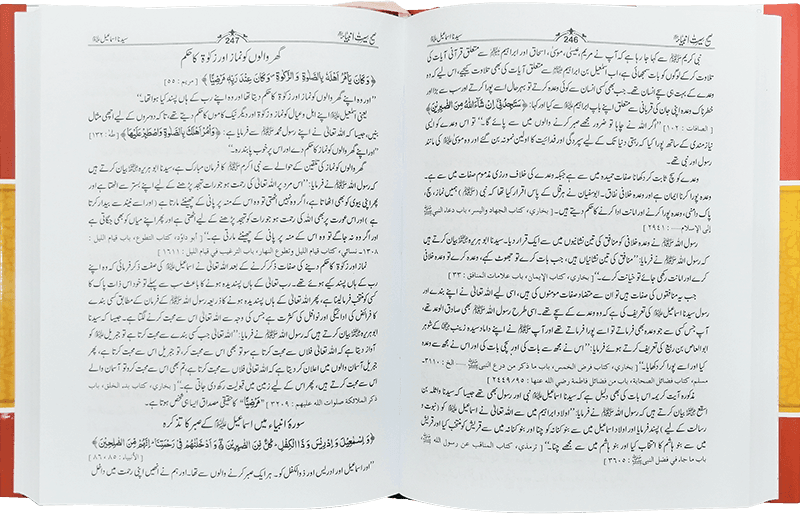 صحیح سیرت انبیاءؑ 246 سیدنا اسماعیل علیہ السلام
نبی کریم ﷺ سے کہا جا رہا ہے کہ آپ نے مریم، عیسیٰ، موسیٰ، اسحاق اور ابراہیم ﷩ سے متعلق قرآنی آیات کی
تلاوت کر کے لوگوں کو بات سمجھائی ہے، اب اسمٰعیل بن ابراہیم ﷩ سے متعلق آیات کی بھی تلاوت کیجیے، اس لیے کہ وہ
وعدے کے بہت ہی سچے انسان تھے۔ جب بھی کسی انسان سے کوئی وعدہ کرتے تو بہرحال اسے پورا کرتے اور سب سے بڑا اور
خطرناک وعدہ اپنی جان کی قربانی سے متعلق اپنے باپ ابراہیم ﷤ سے کیا اور کہا: ﴿سَتَجِدُنِيْٓ اِنْ شَآءَ اللّٰهُ مِنَ الصّٰبِرِيْنَ﴾
[الصافات : ۱۰۲] ”اگر اللہ نے چاہا تو ضرور مجھے صبر کرنے والوں میں سے پائے گا۔“ تو اس وعدے کو ایسی
نیاز مندی کے ساتھ پورا کیا کہ رہتی دنیا تک کے لیے سپردگی اور فدائیت کا اولین نمونہ بن گئے اور وہ موسیٰ ﷤ کی مانند
رسول اور نبی تھے۔
وعدے کو سچ ثابت کر دکھانا صفات حمیدہ میں سے ہے جبکہ وعدے کی خلاف ورزی مذموم صفات میں سے ہے۔
وعدہ پورا کرنا ایمان ہے اور وعدہ خلافی نفاق۔ ابوسفیان نے ہرقل کے پاس اقرار کیا تھا کہ نبی (ﷺ) ہمیں نماز، سچ،
پاک دامنی، وعدہ پورا کرنے اور امانت ادا کرنے کا حکم دیتے ہیں۔ [بخاری، کتاب الجهاد والسير، باب دعاء النبي ﷺ
إلى الإسلام.... : ۲۹۴۱]
رسول اللہ ﷺ نے وعدہ خلافی کو منافق کی تین نشانیوں میں سے ایک قرار دیا۔ سیدنا ابوہریرہ ﷜ بیان کرتے ہیں
کہ رسول اللہ ﷺ نے فرمایا: ”منافق کی تین نشانیاں ہیں، جب بات کرے تو جھوٹ کہے، وعدہ کرے تو وعدہ خلافی
کرے اور امانت رکھی جائے تو خیانت کرے۔“ [بخاری، کتاب الإيمان، باب علامات المنافق : ۳۳]
جب یہ منافقوں کی صفات ہیں تو ان سے متضاد صفات مومنوں کی ہیں، اسی لیے اللہ تعالیٰ نے اپنے بندے اور
رسول سیدنا اسماعیل ﷤ کی تعریف کی ہے کہ وہ وعدے کے سچے تھے۔ اسی طرح رسول اللہ ﷺ بھی صادق الوعد تھے،
آپ جس کسی سے جو وعدہ بھی فرماتے تو اسے پورا فرماتے تھے اور آپ ﷺ نے اپنے داماد سیدہ زینب ﷝ کے شوہر
ابوالعاص بن ربیع کی تعریف کرتے ہوئے فرمایا: ”اس نے مجھ سے بات کی اور سچی بات کی اور اس نے مجھ سے وعدہ
کیا اور اسے پورا کر دکھایا۔“ [بخاری، کتاب فرض الخمس، باب ما ذكر من درع النبي ﷺ الخ : ۳۱۱۰۔
مسلم، کتاب فضائل الصحابة، باب من فضائل فاطمة رضی اللہ عنها : ۲۴۴۹/۹۵]
مذکورہ آیت کریمہ اس بات کی بھی دلیل ہے کہ سیدنا اسماعیل ﷤ نبی اور رسول بھی تھے جیسا کہ سیدنا واثلہ بن
اسقع ﷜ بیان کرتے ہیں کہ رسول اللہ ﷺ نے فرمایا: ”اولاد ابراہیم میں سے اللہ تعالیٰ نے اسماعیل ﷤ کو (نبوت و
رسالت کے لیے) پسند فرمایا اور اولاد اسماعیل میں سے بنو کنانہ کو چنا اور بنو کنانہ میں سے قریش کو منتخب کیا اور قریش
میں سے بنو ہاشم کا انتخاب کیا اور بنو ہاشم میں سے مجھے چنا۔“ [ترمذی، کتاب المناقب عن رسول الله ﷺ
باب ما جاء في فضل النبي ﷺ : ۳۶۰۵]
صحیح سیرت انبیاءؑ 247 سیدنا اسماعیل علیہ السلام
گھر والوں کو نماز اور زکوٰۃ کا حکم
﴿وَكَانَ يَاْمُرُ اَهْلَهٗ بِالصَّلٰوةِ وَالزَّكٰوةِ ۪ وَكَانَ عِنْدَ رَبِّهٖ مَرْضِيًّا﴾ [مریم : ۵۵]
”اور وہ اپنے گھر والوں کو نماز اور زکوٰۃ کا حکم دیتا تھا اور وہ اپنے رب کے ہاں پسند کیا ہوا تھا۔“
یعنی اسمٰعیل ﷤ اپنے اہل و عیال کو نماز و زکوٰۃ اور دیگر نیک کاموں کا حکم دیتے تھے، تاکہ دوسروں کے لیے اچھی مثال
بنیں، جیسا کہ اللہ تعالیٰ نے اپنے رسول محمد ﷺ سے فرمایا: ﴿وَاْمُرْ اَهْلَكَ بِالصَّلٰوةِ وَاصْطَبِرْ عَلَيْهَا﴾ [طٰہٰ : ۱۳۲]
”اور اپنے گھر والوں کو نماز کا حکم دے اور اس پر خوب پابند رہ۔“
گھر والوں کو نماز کی تلقین کے حوالے سے نبی اکرم ﷺ کا فرمان مبارک ہے، سیدنا ابو ہریرہ ﷜ بیان کرتے ہیں
کہ رسول اللہ ﷺ نے فرمایا: ”اس مرد پر اللہ تعالیٰ کی رحمت ہو جو رات تہجد پڑھنے کے لیے اپنے بستر سے اٹھتا ہے اور
پھر اپنی بیوی کو بھی اٹھاتا ہے، اگر وہ نہیں اٹھتی تو وہ اس کے منہ پر پانی کے چھینٹے مارتا ہے (اور اسے نیند سے بیدار کرتا
ہے) اور اس عورت پر بھی اللہ کی رحمت ہو جو رات کو تہجد پڑھنے کے لیے اٹھتی ہے اور پھر اپنے میاں کو بھی جگاتی ہے
اور اگر وہ نہ جاگے تو وہ اس کے منہ پر پانی کے چھینٹے مارتی ہے۔“ [أبو داؤد، کتاب التطوع، باب قيام الليل :
۱۳۰۸۔ نسائی، کتاب قيام الليل وتطوع النهار، باب الترغيب في قيام الليل : ۱۶۱۱]
نماز اور زکوٰۃ کا حکم دینے کی صفات ذکر کرنے کے بعد اللہ تعالیٰ نے اسماعیل ﷤ کی صفت ذکر فرمائی کہ وہ اپنے
رب کے ہاں پسند کیے ہوئے تھے۔ رب تعالیٰ کے ہاں پسندیدہ ہونے کا باعث سب سے پہلے تو خود اس ذات پاک کا
کسی کو منتخب فرما لینا ہے، پھر اللہ تعالیٰ کے ہاں پسندیدہ ہونے کا ذریعہ رسول اللہ ﷺ کے فرمان کے مطابق کسی بندے
کا فرائض کی ادائیگی اور نوافل کی کثرت ہے جس کی وجہ سے اللہ تعالیٰ اس سے محبت کرنے لگتا ہے۔ جیسا کہ سیدنا
ابو ہریرہ ﷜ بیان کرتے ہیں کہ رسول اللہ ﷺ نے فرمایا: ”اللہ تعالیٰ جب کسی بندے سے محبت کرتا ہے تو جبریل کو
آواز دیتا ہے کہ اللہ تعالیٰ فلاں سے محبت کرتا ہے سو تو بھی اس سے محبت کر تو جبریل اس سے محبت کرتا ہے، پھر
آسمان والوں میں اعلان کر دیتا ہے کہ اللہ تعالیٰ فلاں سے محبت کرتا ہے، تم بھی اس سے محبت کرو تو آسمان والے
اس سے محبت کرتے ہیں، پھر اس کے لیے زمین میں قبولیت رکھ دی جاتی ہے۔“ [بخاری، کتاب بدء الخلق، باب
ذكر الملائكة صلوات الله عليهم : ۳۲۰۹] ”مَرْضِيًّا“ کا حقیقی مصداق ایسا ہی شخص ہوتا ہے۔
سورۂ انبیاء میں اسماعیل ﷤ کے صبر کا تذکرہ
﴿وَاِسْمٰعِيْلَ وَاِدْرِيْسَ وَذَا الْكِفْلِ، كُلٌّ مِّنَ الصّٰبِرِيْنَ ۝ وَاَدْخَلْنٰهُمْ فِيْ رَحْمَتِنَا، اِنَّهُمْ مِّنَ الصّٰلِحِيْنَ﴾
[الأنبياء : ۸۵، ۸۶]
”اور اسماعیل اور ادریس اور ذوالکفل کو۔ ہر ایک صبر کرنے والوں سے تھا۔ اور ہم نے انھیں اپنی رحمت میں داخل